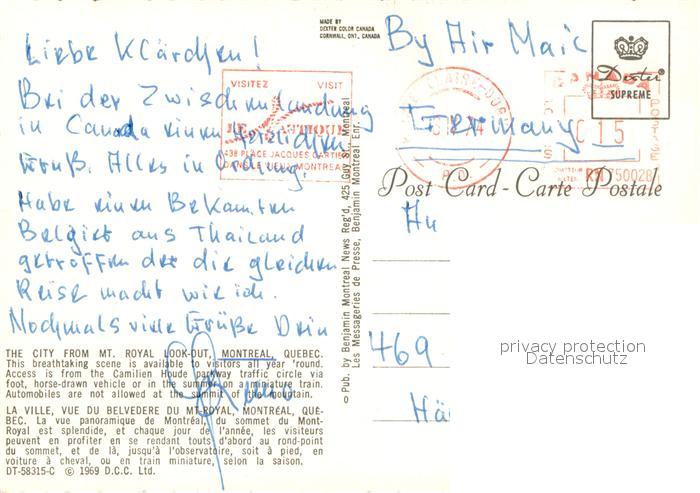 MADE BY
DEXTER COLOR CANADA
CORNWALL, ONT., CANADA
By Air Mail
Dexter®
SUPREME
CANADA
C 15
POSTES
Germany
Post Card - Carte Postale
An
469
Hä
privacy protection
Datenschutz
VISITEZ VISIT
438 PLACE JACQUES CARTIER
DANS LE VIEUX MONTREAL
Liebe Klärchen!
Bei der Zwischenlandung
in Canada einen herzlichen
Gruß. Alles in Ordnung.
Habe einen Bekannten
Belgier aus Thailand
getroffen der die gleichen
Reise macht wie ich.
Nochmals viele Grüße Dein
© Pub. by Benjamin Montreal News Reg'd, 425 Guy St., Montreal
Les Messageries de Presse, Benjamin Montreal Enr.
THE CITY FROM MT. ROYAL LOOK-OUT, MONTREAL, QUEBEC.
This breathtaking scene is available to visitors all year 'round.
Access is from the Camilien Houde parkway traffic circle via
foot, horse-drawn vehicle or in the summer on a miniature train.
Automobiles are not allowed at the summit of the mountain.
LA VILLE, VUE DU BELVEDERE DU MT-ROYAL, MONTRÉAL, QUÉ-
BEC. La vue panoramique de Montréal, du sommet du Mont-
Royal est splendide, et chaque jour de l'année, les visiteurs
peuvent en profiter en se rendant touts d'abord au rond-point
du sommet, et de là, jusqu'à l'observatoire, soit à pied, en
voiture à cheval, ou en train miniature, selon la saison.
DT-58315-C © 1969 D.C.C. Ltd.